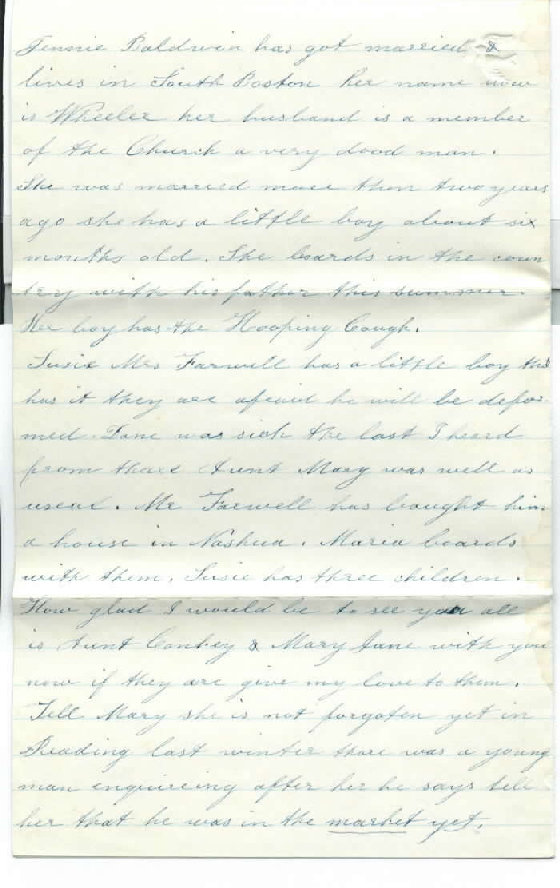 Jennie Baldwin has got married &
lives in South Boston her name now
is Wheeler her husband is a member
of the Church a very dood man.
She was married more then two years
ago she has a little boy about six
months old. She boards in the coun
try with his father this summer.
Her boy has the Hooping Cough.
Susie Mrs Farwell has a little boy that
has it they are afraid he will be defor-
med. Jane was sick the last I heard
from thare Aunt Mary was well as
useal. Mr Farwell has bought him
a house in Nashua. Maria boards
with them. Susie has three children.
How glad I would be to see you all
is Aunt Conkey & Mary Jane with you
now if they are give my love to them.
Tell Mary she is not forgoten yet in
Reading last winter thare was a young
man enquireing after her he says tell
her that he was in the market yet.